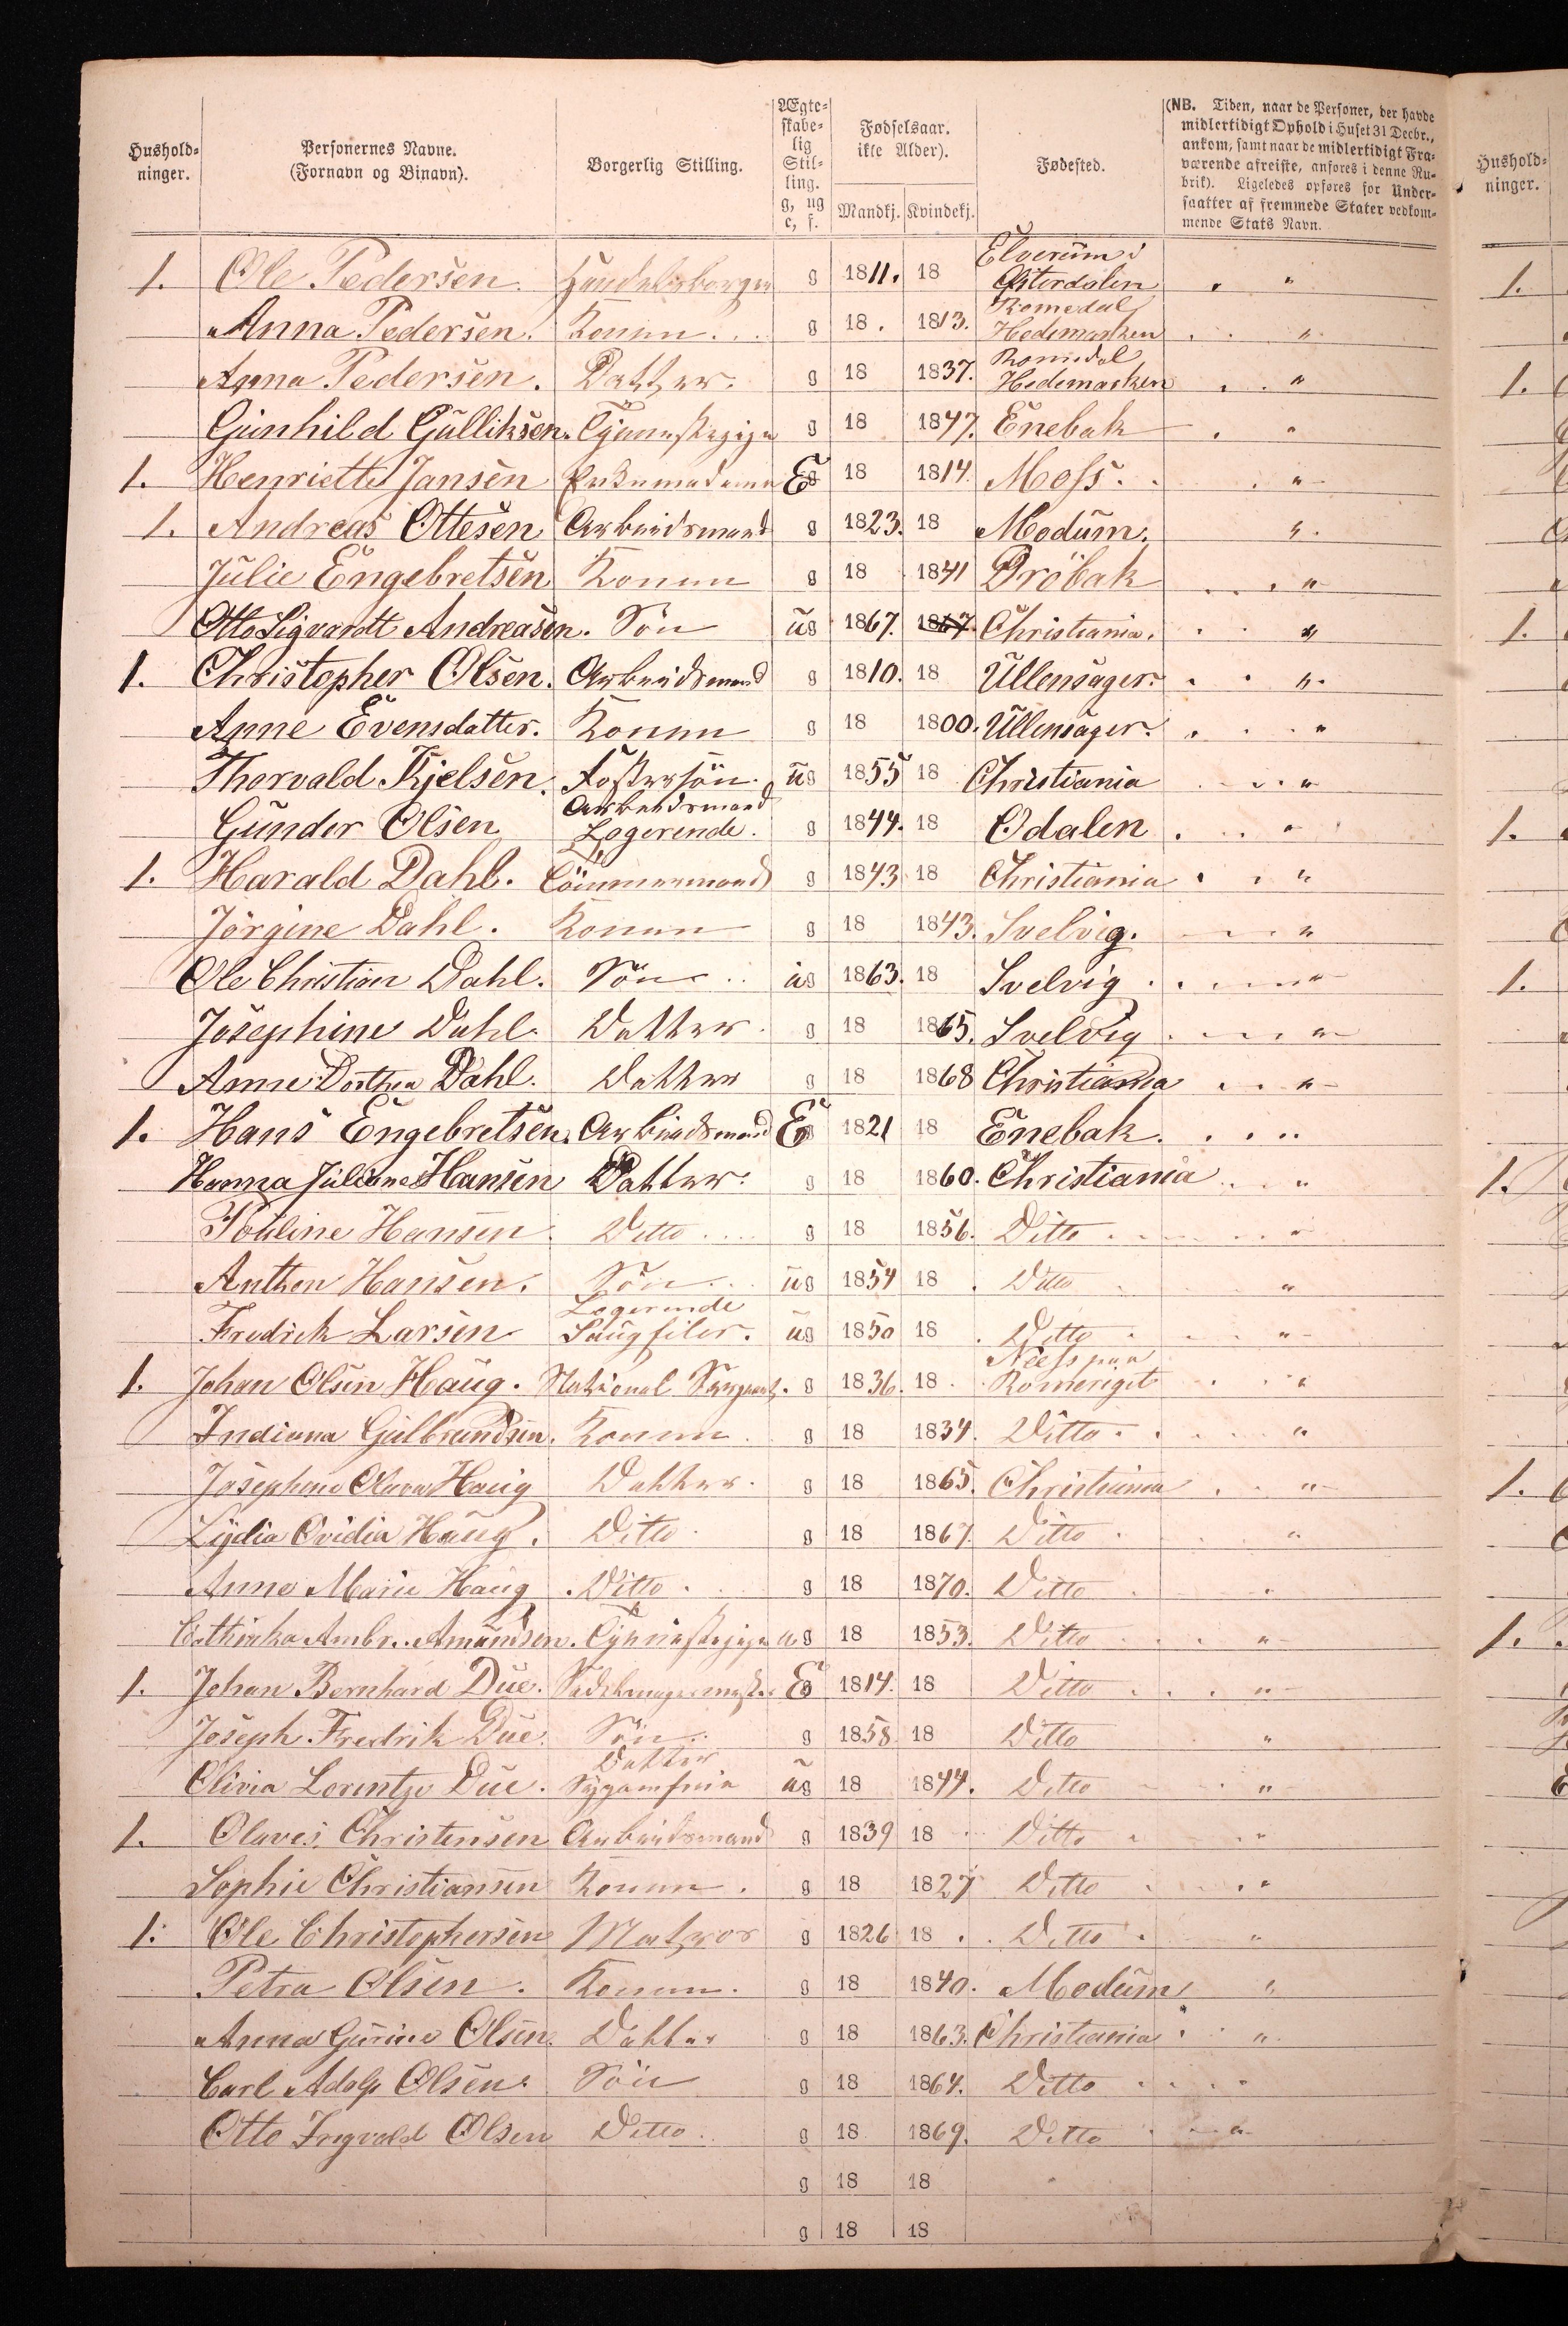 Hushold-
ninger.
Personernes Navne.
(Fornavn og Binavn).
Borgerlig Stilling.
Ægte-
skabe-
lig
Stil-
ling.
g, ug
e, f.
Fødselsaar.
ikke Alder).
Mandkj. Kvindekj.
Fødested.
(NB. Tiden, naar de Personer, der havde
midlertidigt Ophold i Huset 31 Decbr.,
ankom, samt naar de midlertidigt Fra-
værende afreiste, anføres i denne Ru-
brik). Ligeledes opføres for Under-
saatter af fremmede Stater vedkom-
mende Stats Navn.
Hushold-
ninger.
1. Ole Pedersen. Handelsborger g 1811. 18 Elverum i Østerdalen " 1.
Anna Pedersen. Konen g 18 1813. Romedal Hedemarken "
Anna Pedersen. Datter. g 18 1837. Romedal Hedemarken " 1.
Gunhild Gulliksen. Tjenestepige g 18 1847. Enebak "
1. Henriette Jansen Enkemadame E g 18 1814. Moss. "
1. Andreas Ottesen Arbeidsmand g 1823. 18 Modum. "
Julie Engebretsen Konen g 18 1841 Dröbak "
Otto Sigvardt Andreasen. Sön ug 1867. 1867 Christiania. " 1.
1. Christopher Olsen. Arbeidsmand g 1810. 18 Ullensager. "
Anne Evensdatter. Konen g 18 1800. Ullensager. "
Thorvald Kjelsen. Fostersön. ug 1855 18 Christiania "
Gunder Olsen Arbeidsmand Logerende. g 1844. 18 Odalen " 1.
1. Harald Dahl. Tömmermand g 1843 18 Christiania "
Jörgine Dahl. Konen g 18 1843. Svelvig. "
Ole Christian Dahl. Sön ug 1863. 18 Svelvig " 1.
Josephine Dahl. Datter. g 18 1865. Svelvig "
Anne Dorthea Dahl. Datter g 18 1868 Christiania "
1. Hans Engebretsen. Arbeidsmand E g 1821 18 Enebak.
Hanna Juliane Hansen Datter. g 18 1860. Christiania " 1.
Pouline Hansen. Ditto g 18 1856. Ditto "
Anthon Hansen. Sön ug 1854 18 Ditto "
Fredrik Larsen Logerende Saugfiler. ug 1850 18 Ditto "
1. Johan Olsen Haug. National Sergeant. g 1836. 18 Neess paa Romeriget "
Indiana Gulbrandsen. Konen g 18 1834. Ditto "
Josephine Olava Haug Datter. g 18 1865. Christiania " 1.
Lydia Ovidia Haug. Ditto g 18 1867. Ditto "
Anne Marie Haug Ditto g 18 1870. Ditto "
Cathinka Ambr. Amundsen. Tjenestepige ug 18 1853. Ditto " 1.
1. Johan Bernhard Due. Sadelmagermester E g 1814. 18 Ditto "
Joseph Fredrik Due. Sön g 1858 18 Ditto "
Olivia Lorentze Due. Datter ug 18 1844. Ditto "
1. Olaves Christensen Arbeidsmand g 1839 18 Ditto "
Sophie Christiansen Konen. g 18 1827 Ditto "
1. Ole Christophersen Matros g 1826 18 Ditto "
Petra Olsen. Konen. g 18 1840. Modum "
Anna Gurine Olsen. Datter g 18 1863. Christiania "
Carl Adolf Olsen. Sön g 18 1864. Ditto "
Otto Ingvald Olsen Ditto g 18 1869. Ditto "
g 18 18
g 18 18